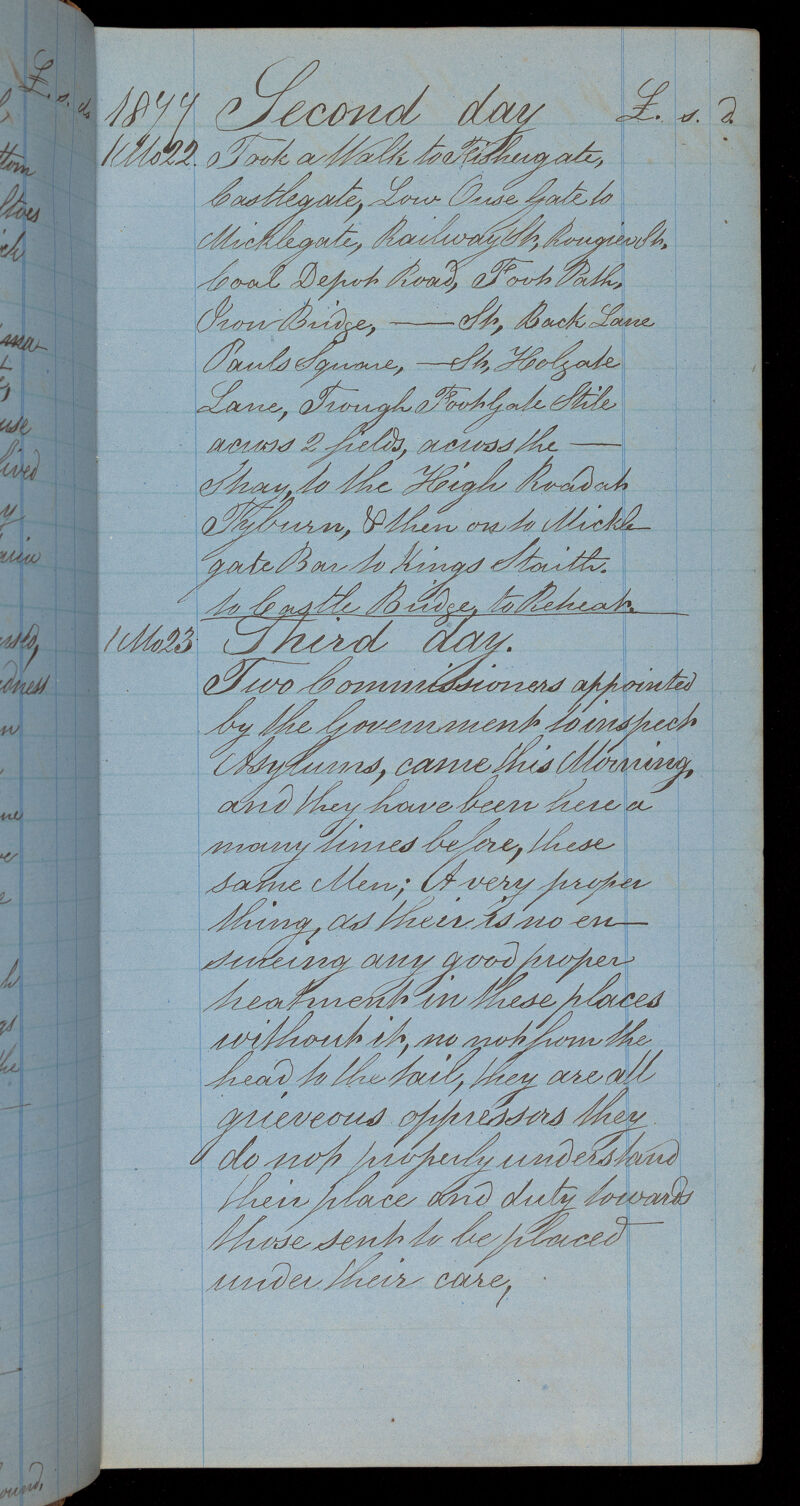 £. s. d.
1877 Second day £. s. d.
1 Mo 22. Took a Walk to Fishergate,
Castlegate, Low Ouse Gate to
Micklegate, Railway St, Rougier St,
Coal Depot Road, Foot Path,
Iron Bridge, — St, Back Lane
Pauls Square, — St, Holgate
Lane, Trough Foot Gate Stile
across 2 fields, across the —
Shay, to the High Road at
Tyburn, & then on to Mickle
gate Bar to Kings Staith.
to Castle Bridge, to Reheat.
1 Mo 23 Third day.
Two Commissioners appointed
by the Government to inspect
Asylums, came this Morning,
and they have been here a
many times before, these
same Men; A very proper
thing, as their is no en—
sureing any good proper
treatment in these places
without it, no not from the
head to the tail, they are all
grieveous oppressors they
do not properly understand
their place and duty towards
those sent to be placed
under their care,